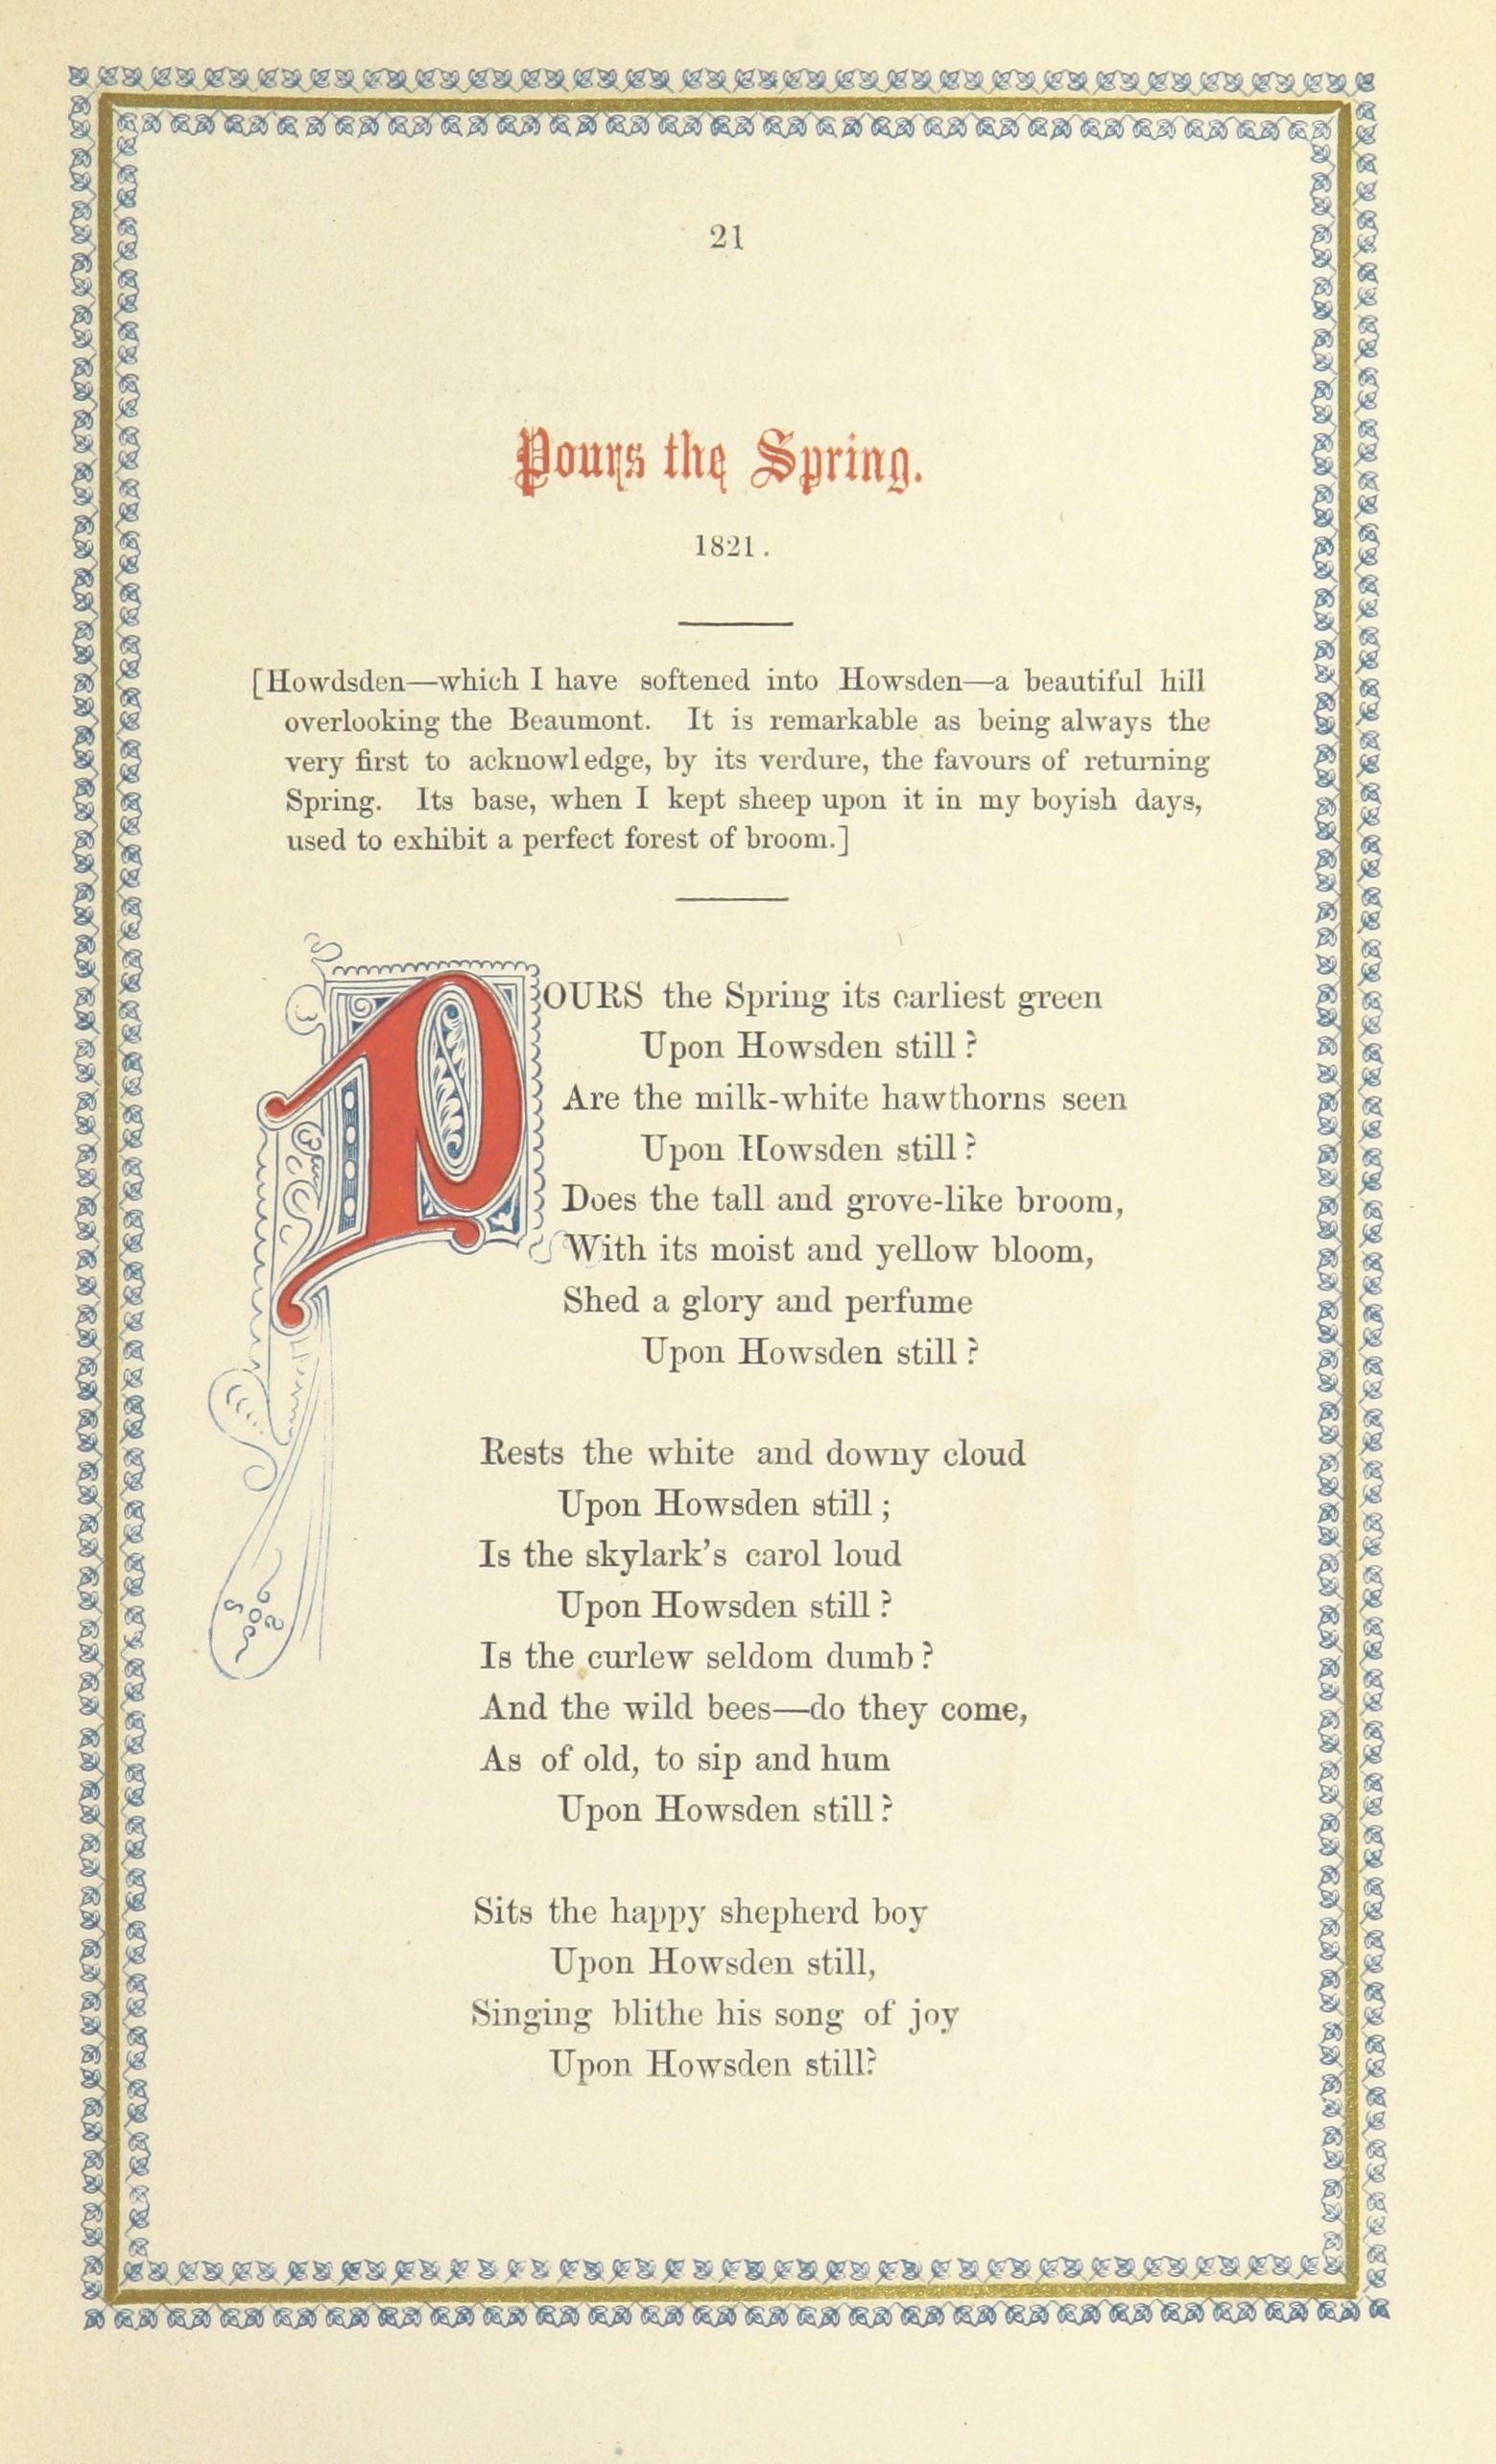 21
Pours the Spring.
1821.
[Howdsden—which I have softened into Howsden—a beautiful hill
overlooking the Beaumont. It is remarkable as being always the
very first to acknowledge, by its verdure, the favours of returning
Spring. Its base, when I kept sheep upon it in my boyish days,
used to exhibit a perfect forest of broom.]
POURS the Spring its earliest green
Upon Howsden still?
Are the milk-white hawthorns seen
Upon Howsden still?
Does the tall and grove-like broom,
With its moist and yellow bloom,
Shed a glory and perfume
Upon Howsden still?
Rests the white and downy cloud
Upon Howsden still;
Is the skylark's carol loud
Upon Howsden still?
Is the curlew seldom dumb?
And the wild bees—do they come,
As of old, to sip and hum
Upon Howsden still?
Sits the happy shepherd boy
Upon Howsden still,
Singing blithe his song of joy
Upon Howsden still?